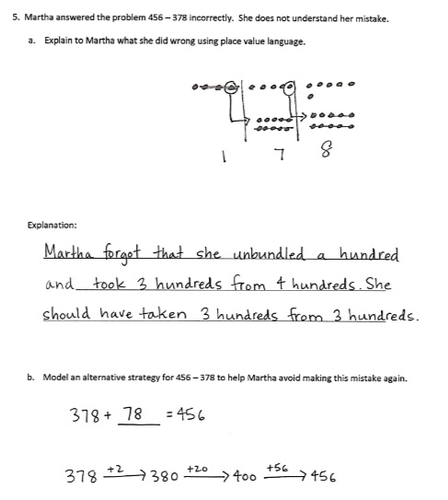 5. Martha answered the problem 456 – 378 incorrectly. She does not understand her mistake.
a. Explain to Martha what she did wrong using place value language.
1 7 8
Explanation:
Martha forgot that she unbundled a hundred
and took 3 hundreds from 4 hundreds. She
should have taken 3 hundreds from 3 hundreds.
b. Model an alternative strategy for 456 – 378 to help Martha avoid making this mistake again.
378 + 78 = 456
378 +2→ 380 +20→ 400 +56→ 456